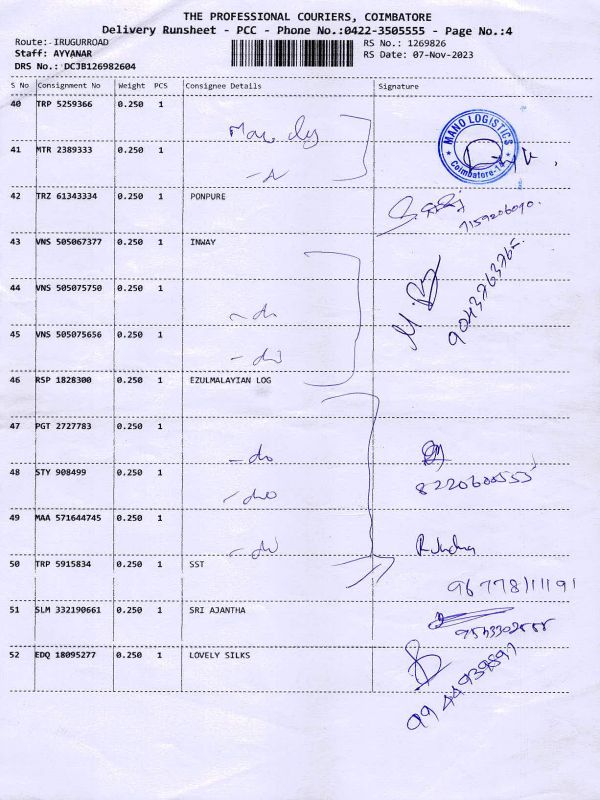 THE PROFESSIONAL COURIERS, COIMBATORE
Delivery Runsheet - PCC - Phone No.:0422-3505555 - Page No.:4
Route:- IRUGURROAD
RS No.: 1269826
Staff: AYYANAR
RS Date: 07-Nov-2023
DRS No.: DCJB126982604
S No Consignment No Weight PCS Consignee Details Signature
40 TRP 5259366 0.250 1
MANO LOGISTICS
Coimbatore-14
41 MTR 2389333 0.250 1
42 TRZ 61343334 0.250 1 PONPURE
7159206090.
43 VNS 505067377 0.250 1 INWAY
44 VNS 505075750 0.250 1
- do
9043763765
45 VNS 505075656 0.250 1
- do
46 RSP 1828300 0.250 1 EZULMALAYIAN LOG
47 PGT 2727783 0.250 1
- do
48 STY 908499 0.250 1
- do
8220600553
49 MAA 571644745 0.250 1
- do
50 TRP 5915834 0.250 1 SST
9677811191
51 SLM 332190661 0.250 1 SRI AJANTHA
52 EDQ 18095277 0.250 1 LOVELY SILKS
9944939897